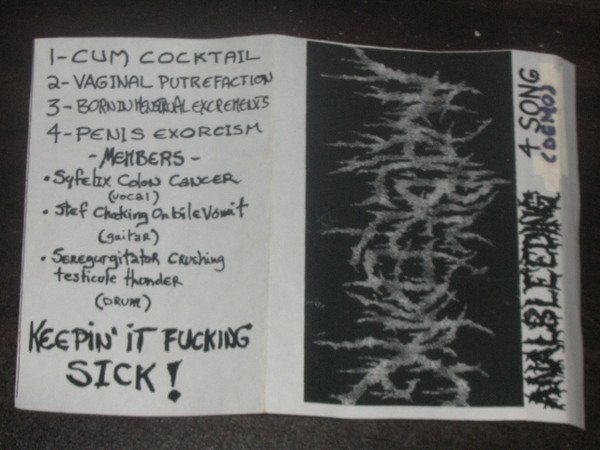 1-CUM COCKTAIL
2-VAGINAL PUTREFACTION
3-BORN IN MENSTRUAL EXCREMENTS
4-PENIS EXORCISM
-MEMBERS-
•Syfelix Colon Cancer
(vocal)
•Stef Choking On bile Vomit
(guitar)
•Seregurgitator Crushing
testicule thunder
(DRUM)
KEEPIN' IT FUCKING
SICK!
ANAL BLEEDING 4 SONG
(DEMO)